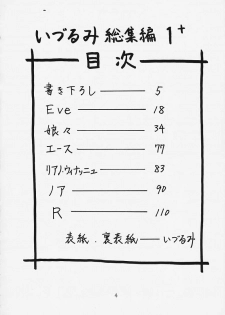 いづるみ 総集編 1+
目次
書き下ろし — 5
Eve — 18
娘々 — 34
エース — 77
リアノ・ヴィナッシュ — 83
ノア — 90
R — 110
表紙.裏表紙 — いづるみ